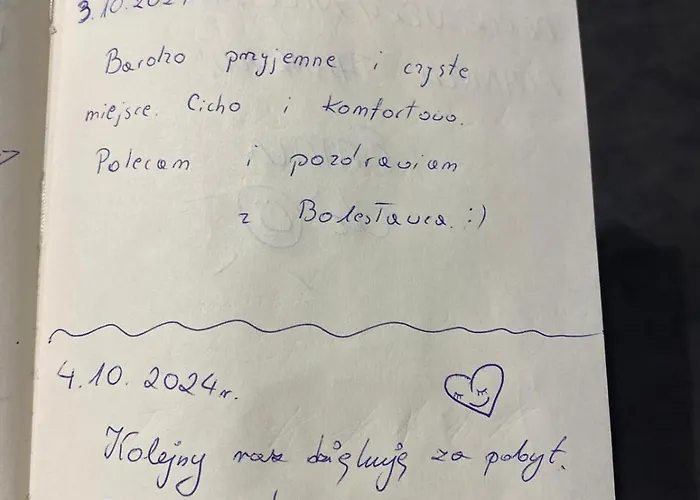 3.10.2024
Bardzo przyjemne i czyste
miejsce. Cicho i komfortowo.
Polecam i pozdrawiam
z Bolesławca. :)
4.10.2024r.
Kolejny raz dziękuję za pobyt.